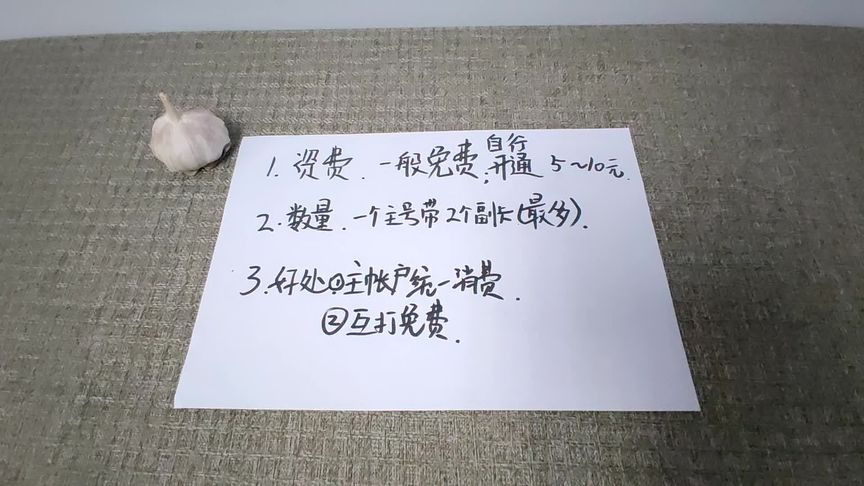 1. 资费. 一般免费; 自行开通 5~10元.
2. 数量. 一个主号带2个副卡(最多).
3. 好处①主帐户统一消费.
②互打免费.